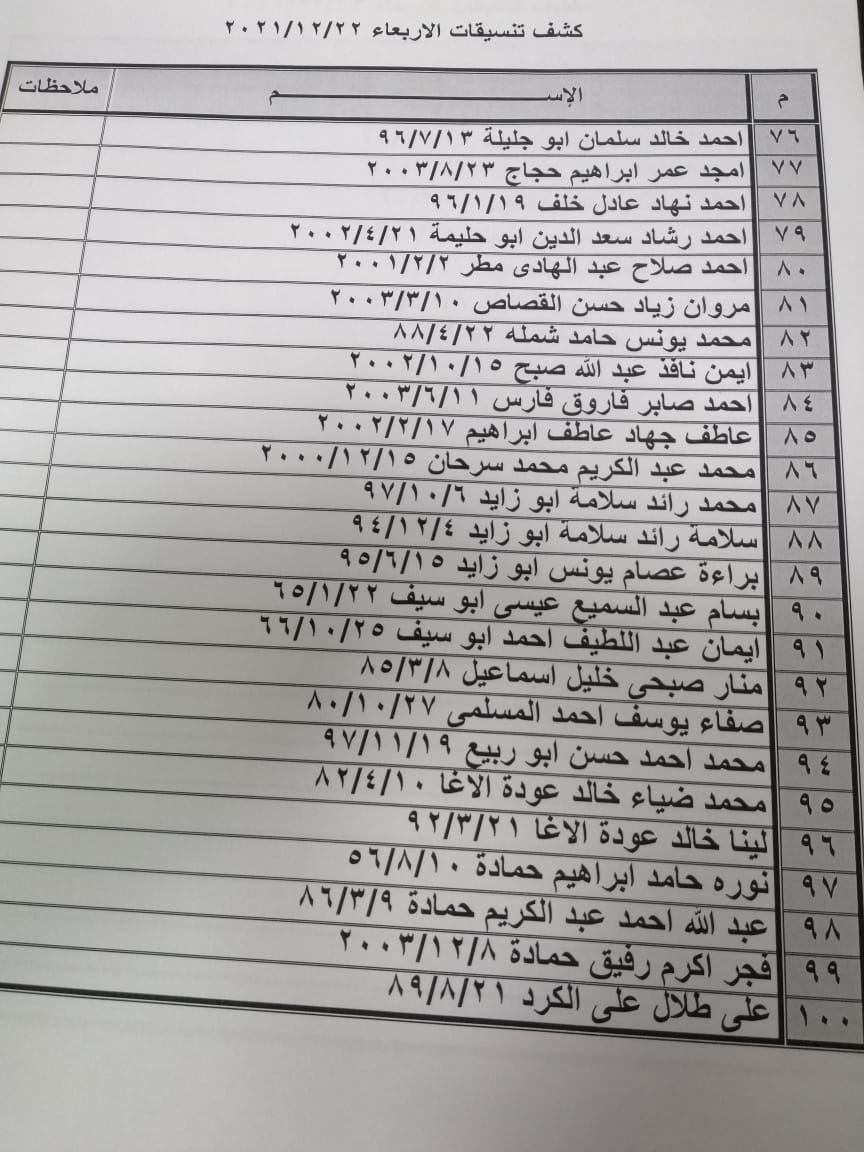 كشف تنسيقات الاربعاء ٢٠٢١/١٢/٢٢
م الإســـــم ملاحظات
٧٦ احمد خالد سلمان ابو جليلة ٩٦/٧/١٣
٧٧ امجد عمر ابراهيم حجاج ٢٠٠٣/٨/٢٣
٧٨ احمد نهاد عادل خلف ٩٦/١/١٩
٧٩ احمد رشاد سعد الدين ابو حليمة ٢٠٠٢/٤/٢١
٨٠ احمد صلاح عبد الهادى مطر ٢٠٠١/٢/٢
٨١ مروان زياد حسن القصاص ٢٠٠٣/٣/١٠
٨٢ محمد يونس حامد شمله ٨٨/٤/٢٢
٨٣ ايمن نافذ عبد الله صبح ٢٠٠٢/١٠/١٥
٨٤ احمد صابر فاروق فارس ٢٠٠٣/٦/١١
٨٥ عاطف جهاد عاطف ابراهيم ٢٠٠٢/٢/١٧
٨٦ محمد عبد الكريم محمد سرحان ٢٠٠٠/١٢/١٥
٨٧ محمد رائد سلامة ابو زايد ٩٧/١٠/٦
٨٨ سلامة رائد سلامة ابو زايد ٩٤/١٢/٤
٨٩ براءة عصام يونس ابو زايد ٩٥/٦/١٥
٩٠ بسام عبد السميع عيسى ابو سيف ٦٥/١/٢٢
٩١ ايمان عبد اللطيف احمد ابو سيف ٦٦/١٠/٢٥
٩٢ منار صبحى خليل اسماعيل ٨٥/٣/٨
٩٣ صفاء يوسف احمد المسلمى ٨٠/١٠/٢٧
٩٤ محمد احمد حسن ابو ربيع ٩٧/١١/١٩
٩٥ محمد ضياء خالد عودة الاغا ٨٢/٤/١٠
٩٦ لينا خالد عودة الاغا ٩٢/٣/٢١
٩٧ نوره حامد ابراهيم حمادة ٥٦/٨/١٠
٩٨ عبد الله احمد عبد الكريم حمادة ٨٦/٣/٩
٩٩ فجر اكرم رفيق حمادة ٢٠٠٣/١٢/٨
١٠٠ على طلال على الكرد ٨٩/٨/٢١